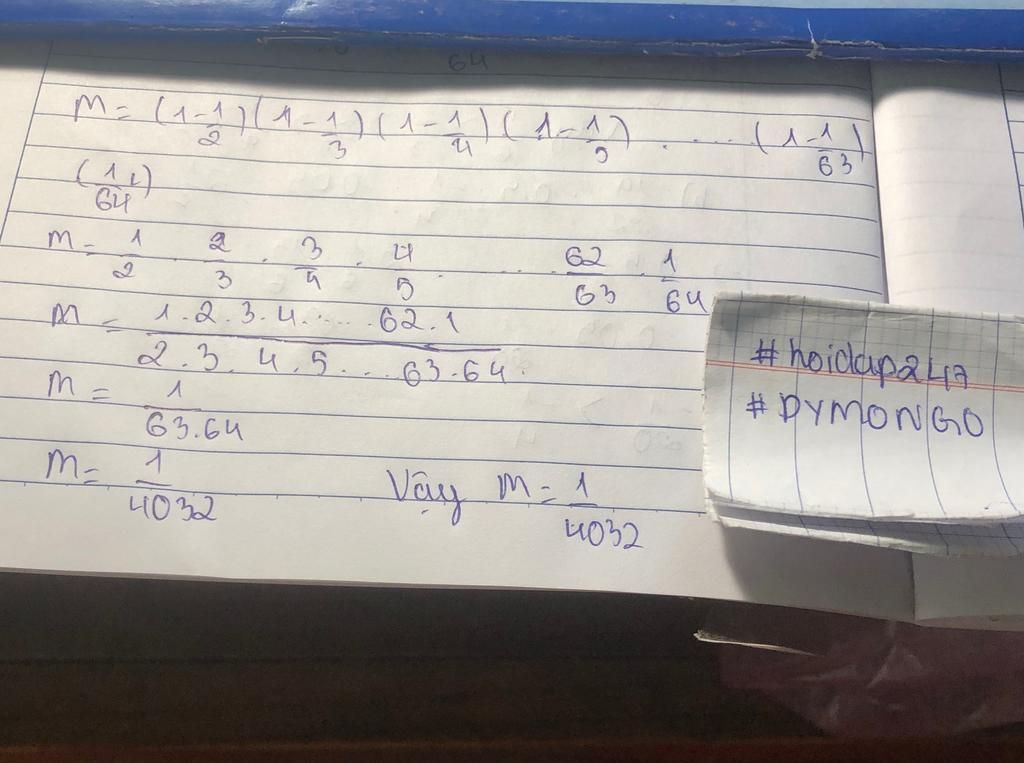 64
M = (1 - 1/2) (1 - 1/3) (1 - 1/4) (1 - 1/5) . ..... (1 - 1/63)
(1/64)
M = 1/2 . 2/3 . 3/4 . 4/5 . ... 62/63 . 1/64
M = 1.2.3.4.....62.1 / 2.3.4.5...63.64
M = 1/63.64
M = 1/4032 Vậy M = 1/4032
#hoidap247
#DYMONGO